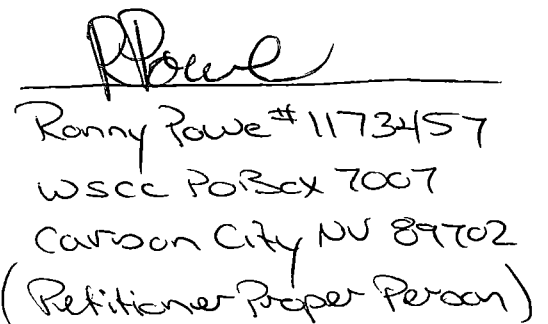 RPowe
Ronny Powe #1173457
WSCC PO Box 7007
Carson City NV 89702
(Petitioner Proper Person)